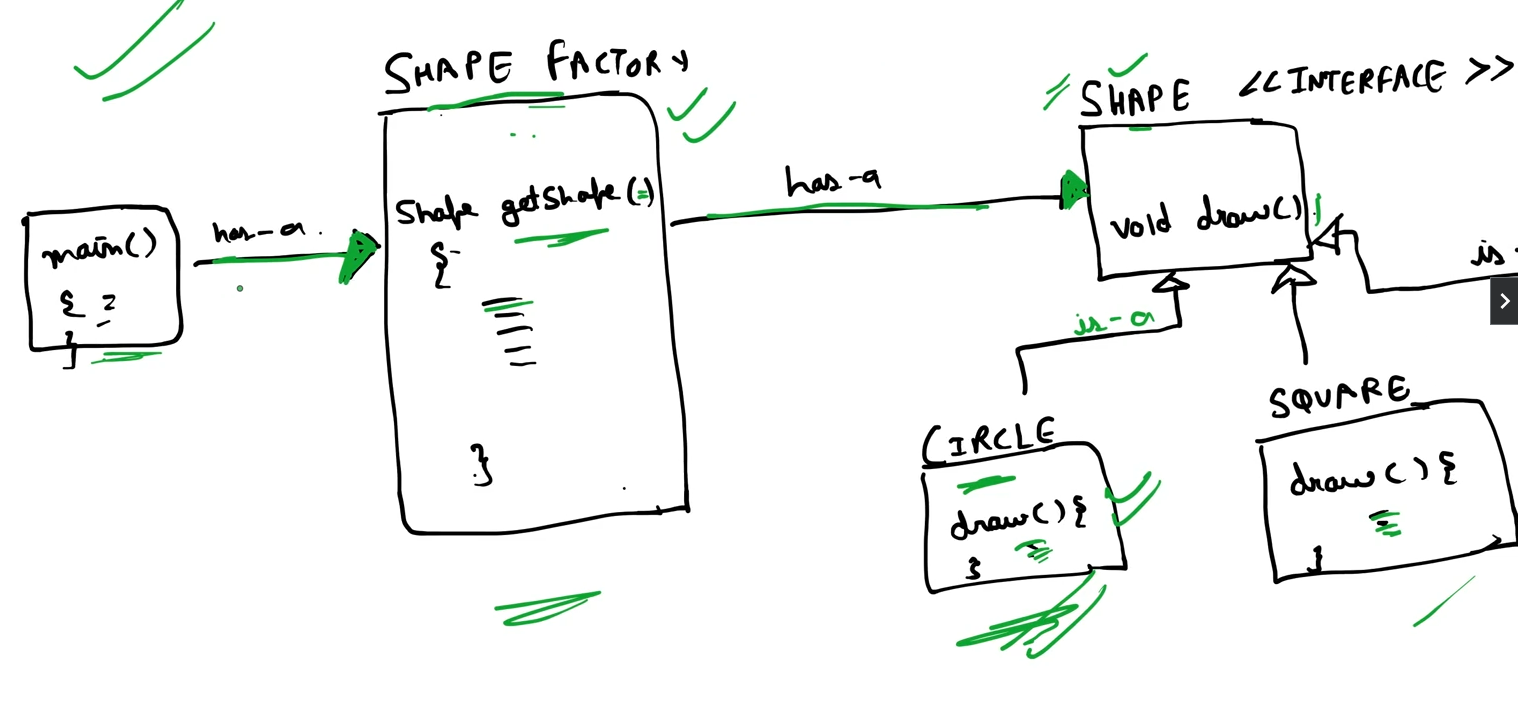 main()
{ =
}
has-a
SHAPE FACTORY
Shape getShape()
{
}
has-a
SHAPE <<INTERFACE>>
void draw()
is-a
is
CIRCLE
draw(){
}
SQUARE
draw(){
}